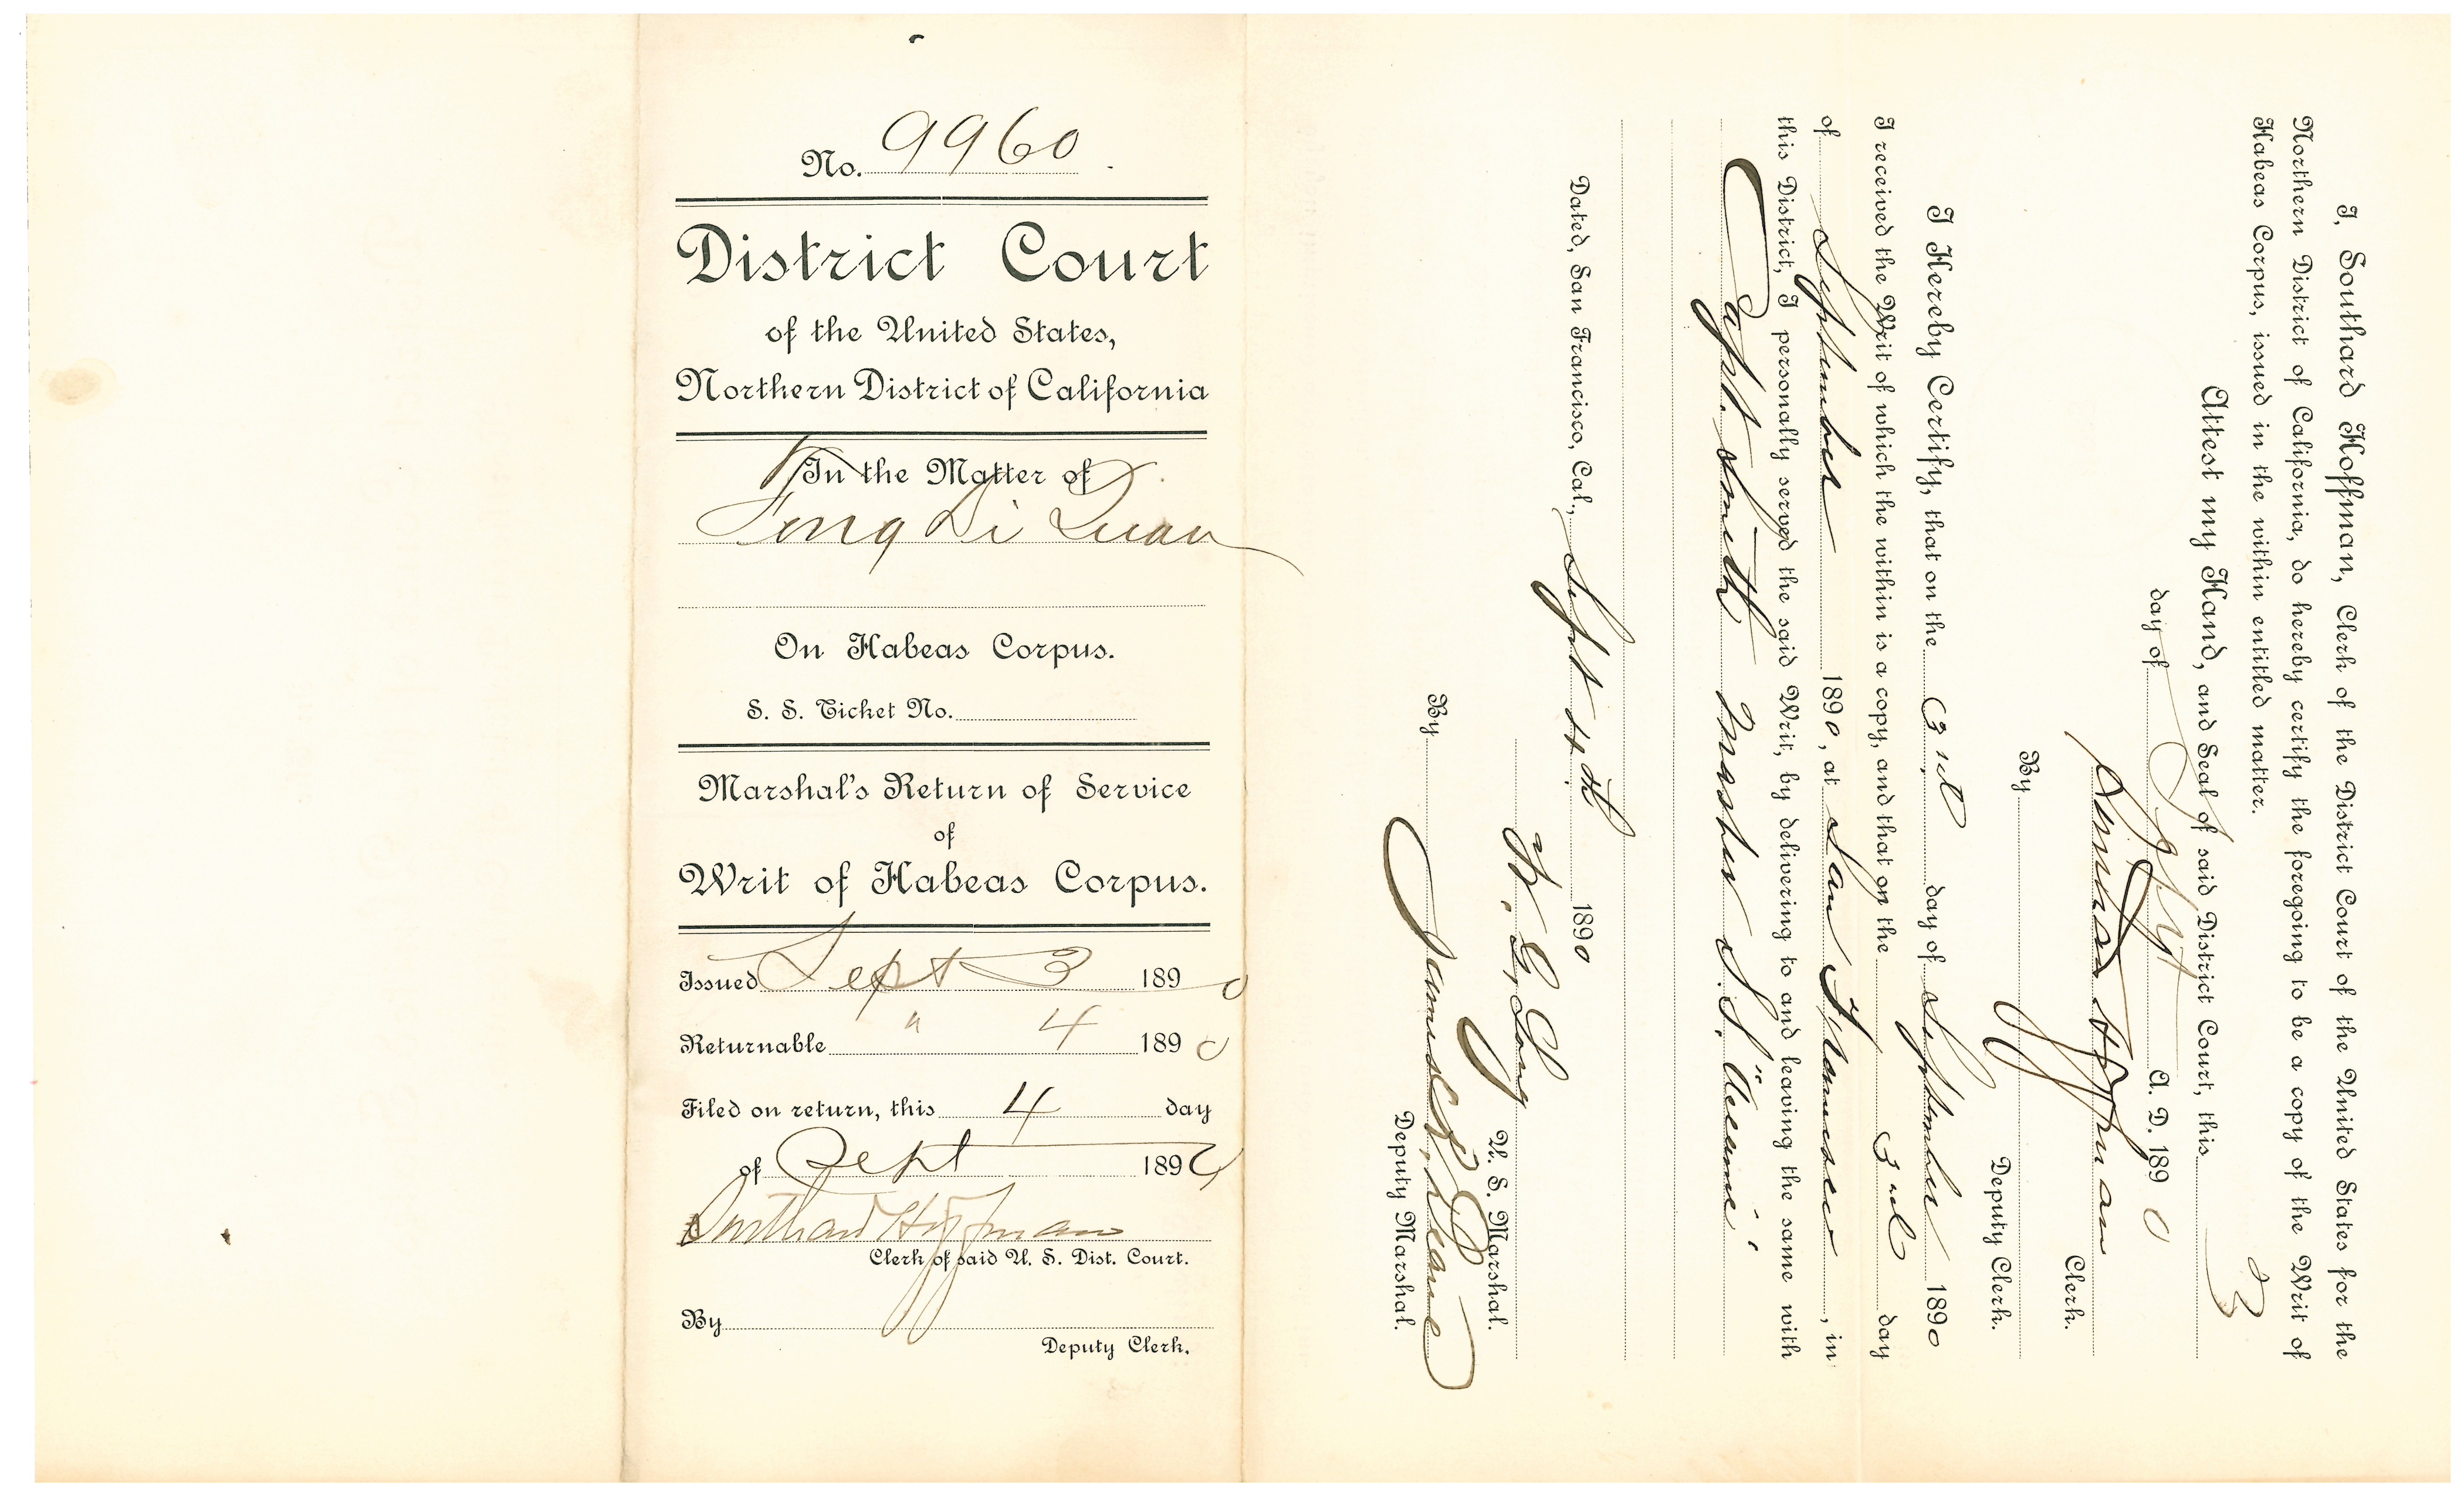 No. 9960
District Court
of the United States,
Northern District of California
In the Matter of
Fong Di Quan
On Habeas Corpus.
S. S. Ticket No.
Marshal's Return of Service
of
Writ of Habeas Corpus.
Issued Sept 3 1890
Returnable " 4 1890
Filed on return, this 4 day
of Sept 1890
Southard Hoffman
Clerk of said U. S. Dist. Court.
By
Deputy Clerk.
I, Southard Hoffman, Clerk of the District Court of the United States for the
Northern District of California, do hereby certify the foregoing to be a copy of the Writ of
Habeas Corpus, issued in the within entitled matter.
Attest my Hand, and Seal of said District Court, this 3
day of Sept A. D. 1890
Southard Hoffman
Clerk.
By
Deputy Clerk.
I Hereby Certify, that on the 3rd day of September 1890
I received the Writ of which the within is a copy, and that on the 3rd day
of September 1890, at San Francisco, in
this District, I personally served the said Writ, by delivering to and leaving the same with
Capt. Smith Master S.S.
Dated, San Francisco, Cal., Sept 4th 1890
W. G. Long
U. S. Marshal.
By James
Deputy Marshal.